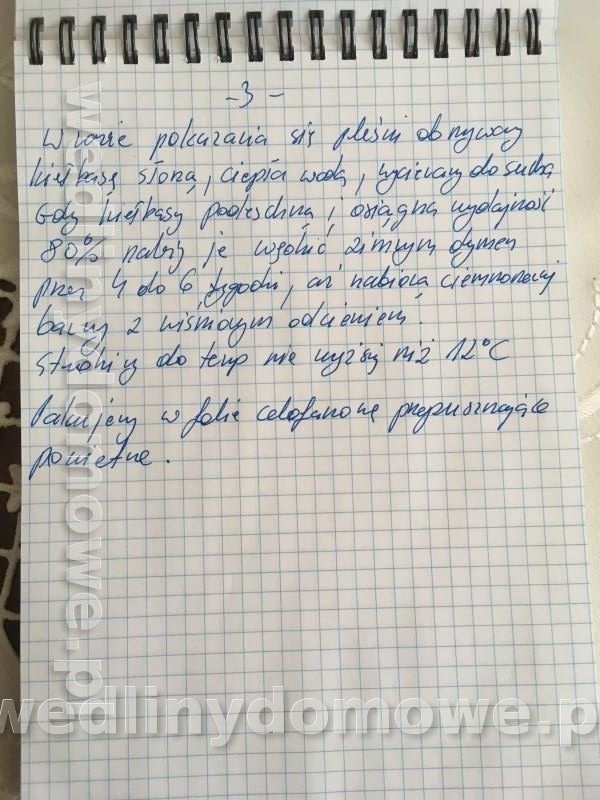 -3-
W razie pokazania się pleśni obmywamy
kiełbasę słoną, ciepłą wodą, wycieramy do sucha
Gdy kiełbasy podeschną i osiągną wydajność
80% należy je wędzić zimnym dymem
przez 4 do 6 tygodni, aż nabiorą ciemnoczerwonej
barwy z wiśniowym odcieniem.
Studzimy do temp nie wyższej niż 12°C
Pakujemy w folie celofanową przepuszczające
powietrze.
wedlinydomowe.pl
wedlinydomowe.p